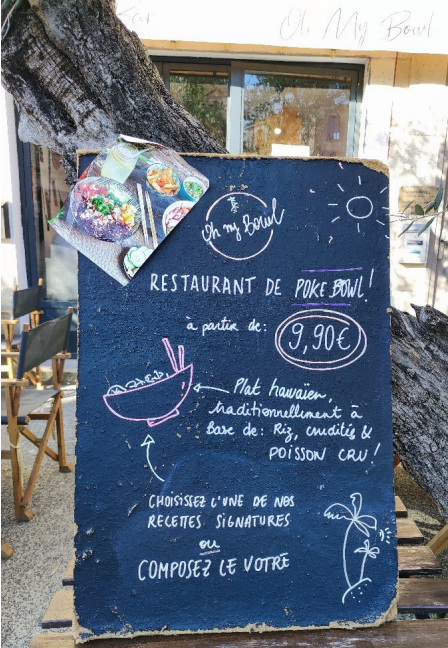 Oh My Bowl
Oh my Bowl
RESTAURANT DE POKE BOWL!
à partir de:
9,90€
Plat hawaïen,
traditionnellement à
Base de: Riz, crudités &
POISSON CRU!
CHOISISSEZ L'UNE DE NOS
RECETTES SIGNATURES
ou
COMPOSEZ LE VOTRE